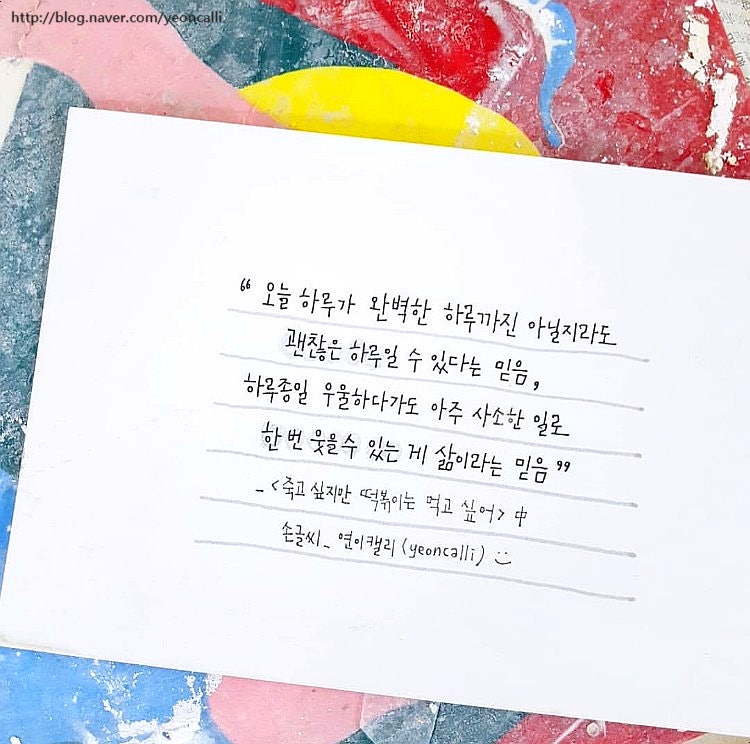 http://blog.naver.com/yeoncalli.
“ 오늘 하루가 완벽한 하루까진 아닐지라도
괜찮은 하루일 수 있다는 믿음,
하루종일 우울하다가도 아주 사소한 일로
한 번 웃을 수 있는 게 삶이라는 믿음 ”
_ <죽고 싶지만 떡볶이는 먹고 싶어> 中
손글씨_ 연이캘리 (yeoncalli) :)